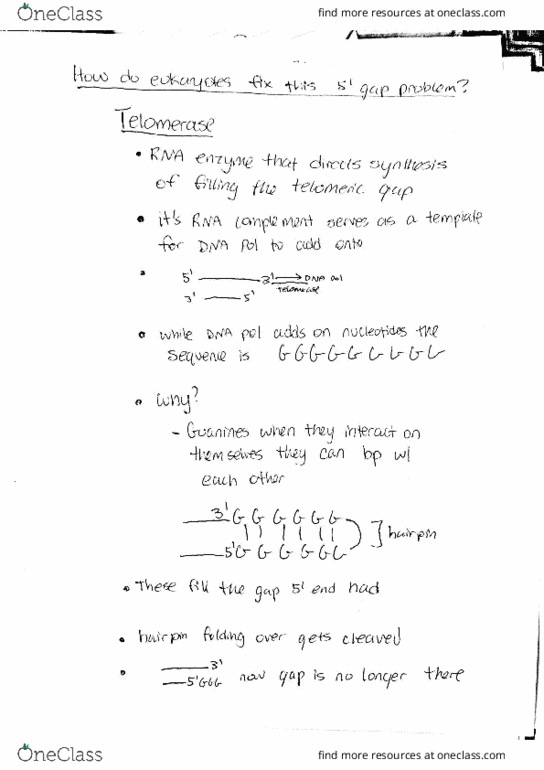 OneClass
find more resources at oneclass.com
How do eukaryotes fix this 5' gap problem?
Telomerase
• RNA enzyme that directs synthesis
of filling the telomeric gap
• it's RNA complement serves as a template
for DNA Pol to add onto
• 5' 3' → DNA pol
telomerase
3' 5'
• while DNA pol adds on nucleotides the
sequence is GGGGGGGGG
• Why?
- Guanines when they interact on
themselves they can bp w/
each other
3'G G G G G G
] hairpin
5'G G G G G G
• These fill the gap 5' end had
• hairpin folding over gets cleaved
• 3'
5'GGG now gap is no longer there
OneClass
find more resources at oneclass.com